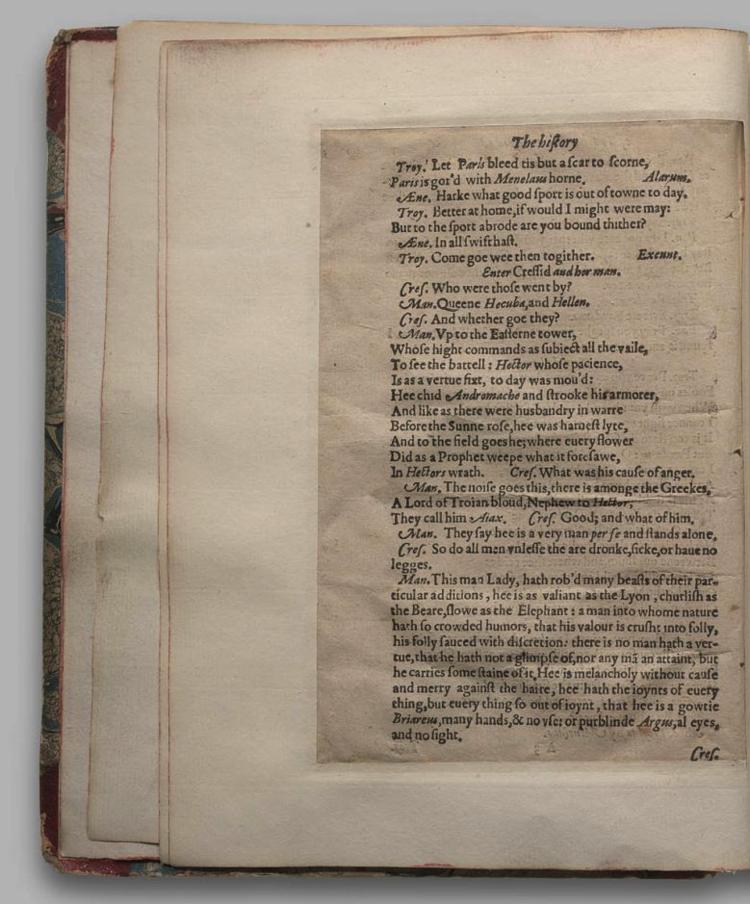 The hiſtory
Troy. Let Paris bleed tis but a ſcar to ſcorne,
Paris is gor'd with Menelaus horne. Alarum.
Æne. Harke what good ſport is out of towne to day.
Troy. Better at home, if would I might were may:
But to the ſport abrode are you bound thither?
Æne. In all ſwift haſt.
Troy. Come goe wee then togither. Exeunt.
Enter Creſſid and her man.
Creſ. Who were thoſe went by?
Man. Queene Hecuba, and Hellen.
Creſ. And whether goe they?
Man. Vp to the Eaſterne tower,
Whoſe hight commands as ſubiect all the vaile,
To ſee the battell: Hector whoſe pacience,
Is as a vertue fixt, to day was mou'd:
Hee chid Andromache and ſtrooke his armorer,
And like as there were husbandry in warre
Before the Sunne roſe, hee was harneſt lyte,
And to the field goes he; where euery flower
Did as a Prophet weepe what it forſawe,
In Hectors wrath. Creſ. What was his cauſe of anger.
Man. The noiſe goes this, there is amonge the Greekes,
A Lord of Troian bloud, Nephew to Hector,
They call him Aiax. Creſ. Good; and what of him.
Man. They ſay hee is a very man per ſe and ſtands alone,
Creſ. So do all men vnleſſe the are dronke, ſicke, or haue no
legges.
Man. This man Lady, hath rob'd many beaſts of their par-
ticular additions, hee is as valiant as the Lyon, churliſh as
the Beare, ſlowe as the Elephant: a man into whome nature
hath ſo crowded humors, that his valour is cruſht into folly,
his folly ſauced with diſcretion: there is no man hath a ver-
tue, that he hath not a glimpſe of, nor any mã an attaint, but
he carries ſome ſtaine of it, Hee is melancholy without cauſe
and merry againſt the haire, hee hath the ioynts of euery
thing, but euery thing ſo out of ioynt, that hee is a gowtie
Briareus, many hands, & no vſe: or purblinde Argus, al eyes,
and no ſight.
Creſ.